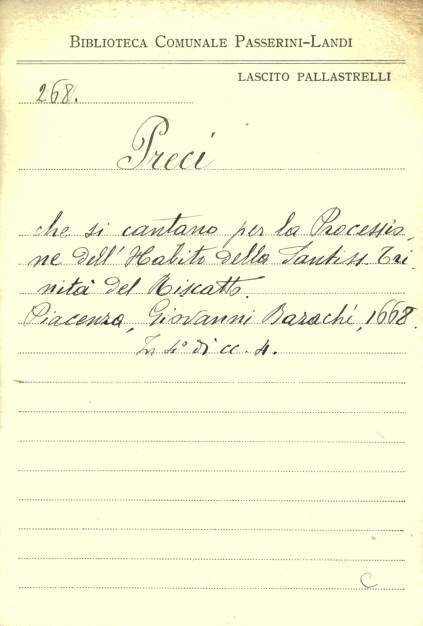 BIBLIOTECA COMUNALE PASSERINI-LANDI
LASCITO PALLASTRELLI
268.
Preci
che si cantano per la Processio,
ne dell' Habito della Santiss. Tri-
nità del Riscatto.
Piacenza, Giovanni Bazachi, 1668.
In 4° di cc. 4.
C